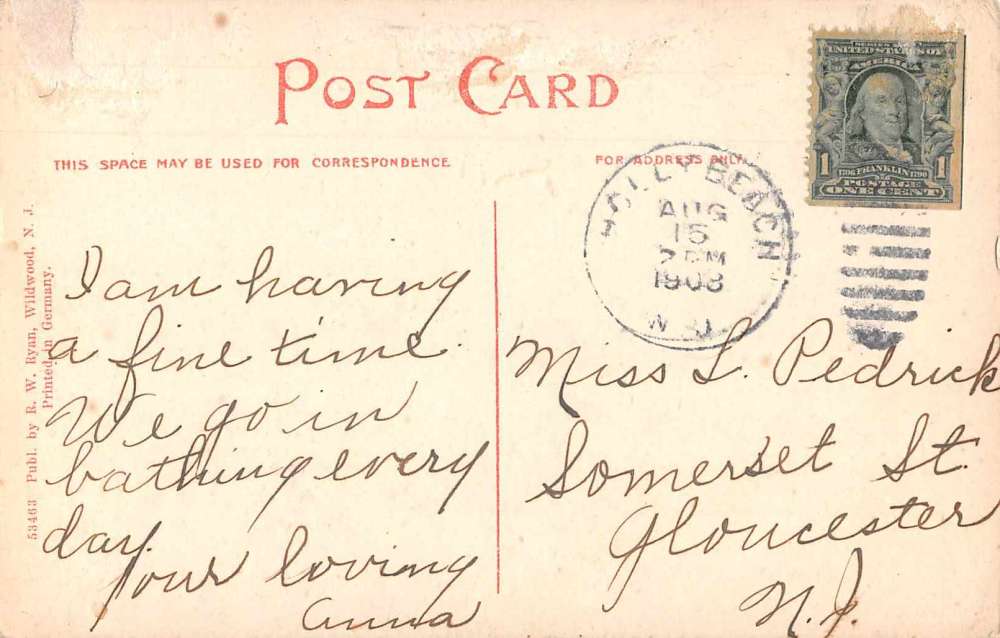 POST CARD
THIS SPACE MAY BE USED FOR CORRESPONDENCE
FOR ADDRESS ONLY.
SERIES 1902
UNITED STATES OF
AMERICA
1
1
1706 FRANKLIN 1790
POSTAGE
ONE CENT
HOLLY BEACH
AUG
15
7 PM
1908
N.J.
53463 Publ. by R. W. Ryan, Wildwood, N. J.
Printed in Germany.
I am having
a fine time.
We go in
bathing every
day.
Your loving
Anna
Miss L. Pedrick
Somerset St.
Gloucester
N.J.